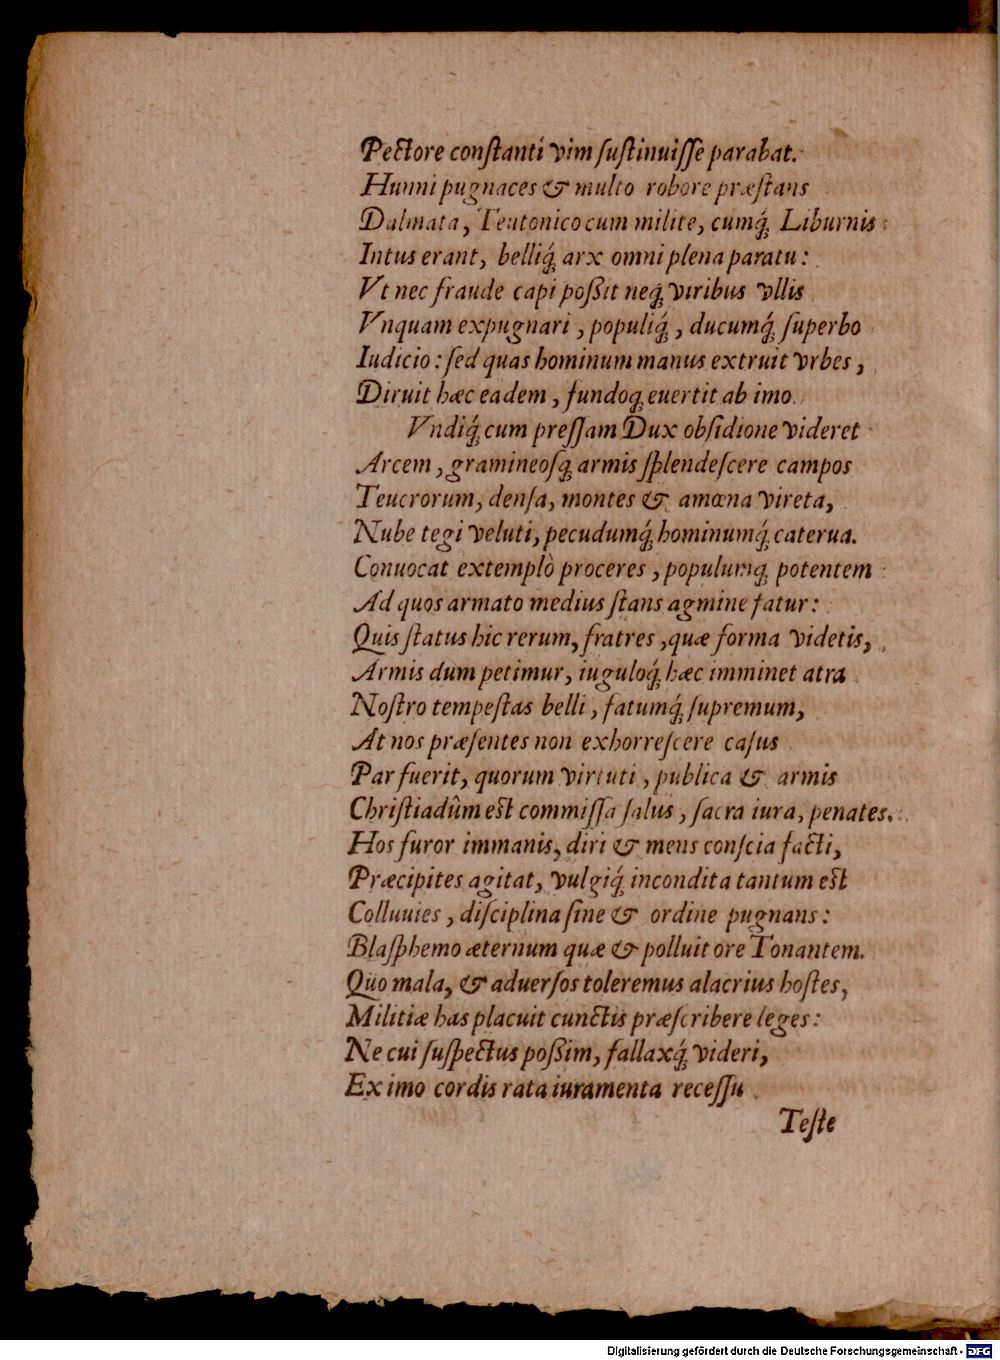 Pectore conſtanti vim ſuſtinuiſſe parabat.
Hunni pugnaces & multo robore præſtans
Dalmata, Teutonico cum milite, cumq́ꝫ Liburnis
Intus erant, belliq́ꝫ arx omni plena paratu:
Vt nec fraude capi poßit neqꝫ viribus vllis
Vnquam expugnari, populiq́ꝫ, ducumq́ꝫ ſuperbo
Iudicio: ſed quas hominum manus extruit vrbes,
Diruit hæc eadem, fundoqꝫ euertit ab imo.
Vndiq́ꝫ cum preſſam Dux obſidione videret
Arcem, gramineoſqꝫ armis ſplendeſcere campos
Teucrorum, denſa, montes & amœna vireta,
Nube tegi veluti, pecudumq́ꝫ hominumq́ꝫ caterua.
Conuocat extemplò proceres, populumqꝫ potentem
Ad quos armato medius ſtans agmine fatur:
Quis ſtatus hic rerum, fratres, quæ forma videtis,
Armis dum petimur, iuguloq́ꝫ hæc imminet atra
Noſtro tempeſtas belli, fatumq́ꝫ ſupremum,
At nos præſentes non exhorreſcere caſus
Par fuerit, quorum virtuti, publica & armis
Chriſtiadûm eſt commiſſa ſalus, ſacra iura, penates.
Hos furor immanis, diri & mens conſcia facti,
Præcipites agitat, vulgiq́ꝫ incondita tantum eſt
Colluuies, diſciplina ſine & ordine pugnans:
Blaſphemo æternum quæ & polluit ore Tonantem.
Quo mala, & aduerſos toleremus alacrius hoſtes,
Militiæ has placuit cunctis præſcribere leges:
Ne cui ſuſpectus poßim, fallaxq́ꝫ videri,
Ex imo cordis rata iuramenta receſſu
Teſte
Digitalisierung gefördert durch die Deutsche Forschungsgemeinschaft - DFG